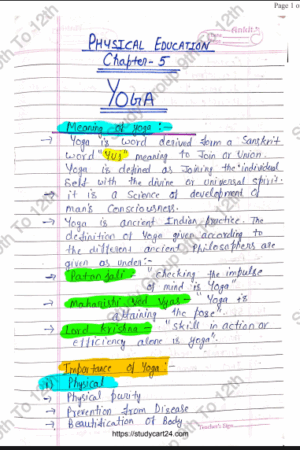 Page 1 o
PHYSICAL EDUCATION
Chapter - 5
YOGA
Meaning of yoga :-
→ Yoga is word desived form a Sanskrit
word "YUJ" meaning to Join or Union.
Yoga is defined as Joining the individual
self with the divine or universal spirit.
→ it is a Science of development of
man's Consciousness.
→ Yoga is ancient Indian practice. The
definition of Yoga given according to
the different ancient Philosophers are
given as under:-
→ Patanjali :- "checking the impulse
of mind is Yoga"
→ Maharishi Ved Vyas - "Yoga is
attaining the pose"
→ Lord Krishna - "skill in action or
efficiency alone is yoga".
Importance of Yoga :-
Physical
→ Physical purity
→ Prevention from Disease
→ Beautification of Body
https://studycart24.com
Teacher's Sign